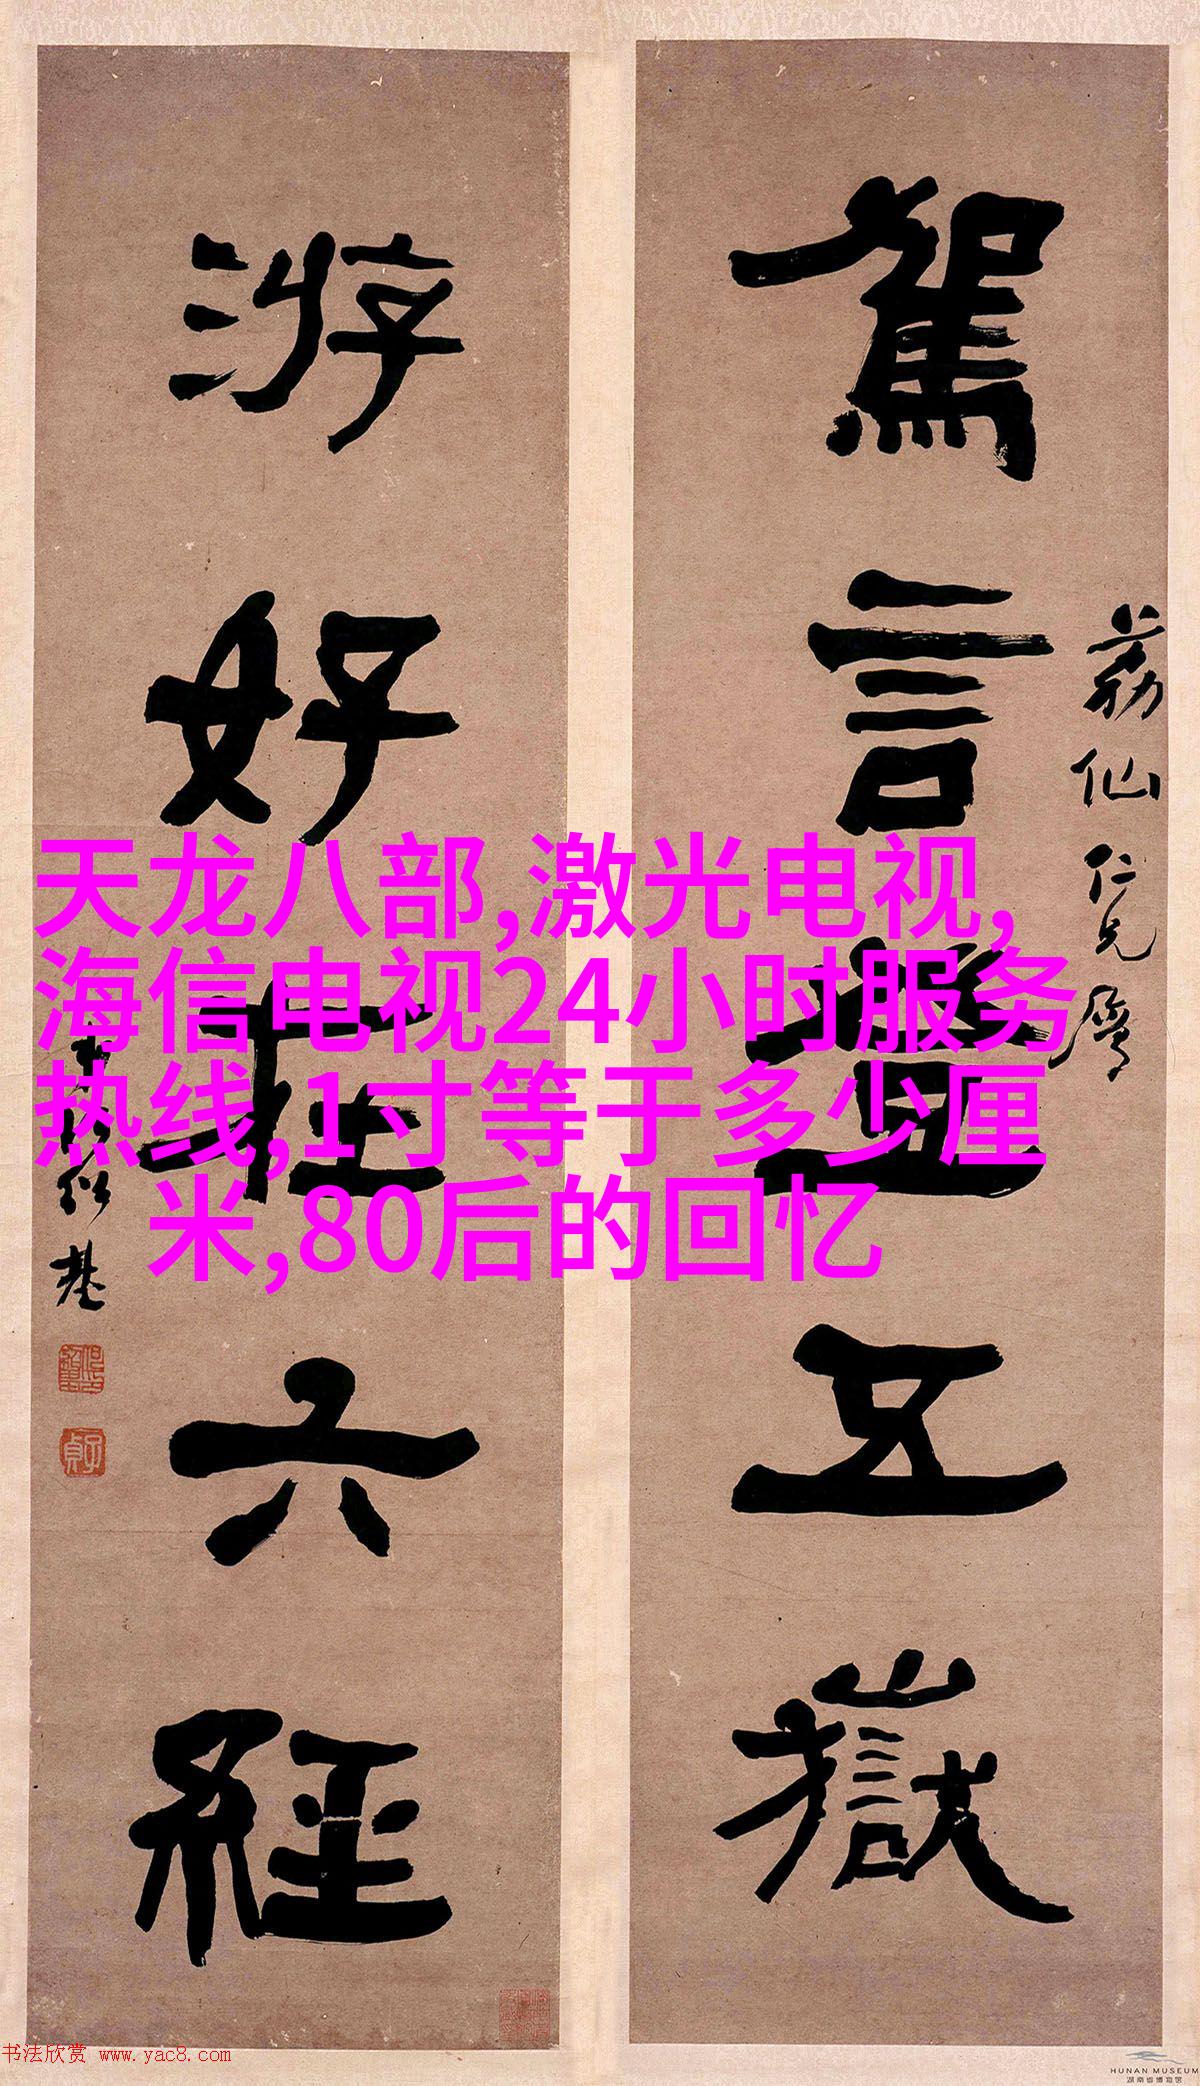 駕言登五嶽
荔仙仁兄屬
游好在六經
何紹基
子貞
天龙八部,激光电视,
海信电视24小时服务
热线,1寸等于多少厘
米,80后的回忆
书法欣赏 www.yac8.com
HUNAN MUSEUM
湖南省博物馆